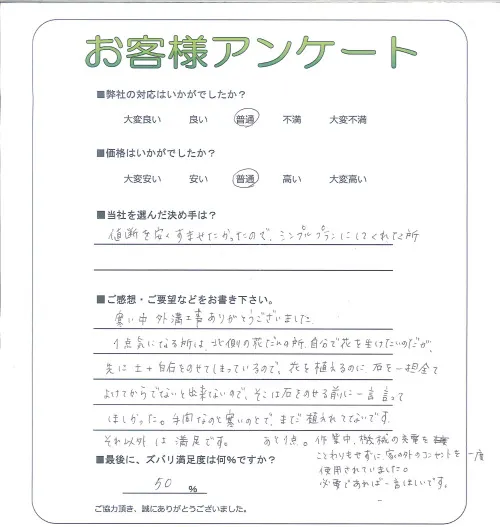 お客様アンケート
■弊社の対応はいかがでしたか?
大変良い 良い 普通 不満 大変不満
■価格はいかがでしたか?
大変安い 安い 普通 高い 大変高い
■当社を選んだ決め手は?
値断を安くすませたかったので、シンプルプランにしてくれた所
■ご感想・ご要望などをお書き下さい。
寒い中外溝工事ありがとうございました。
1点気になる所は、北側の花だんの所、自分で花を生けたいのだが、
先に土+白石をのせてしまっているので、花を植えるのに石を一担全て
よけてからでないと出来ないので、そこは石をのせる前に一言言って
ほしかった。手間なのと寒いのとで、まだ植えれてないです。
それ以外は満足です。 あと1点。作業中、機械の充電を
ことわりもせずに家の外のコンセントを一度
使用されていました。
必要であれば一言ほしいです。
■最後に、ズバリ満足度は何%ですか?
50 %
ご協力頂き、誠にありがとうございました。